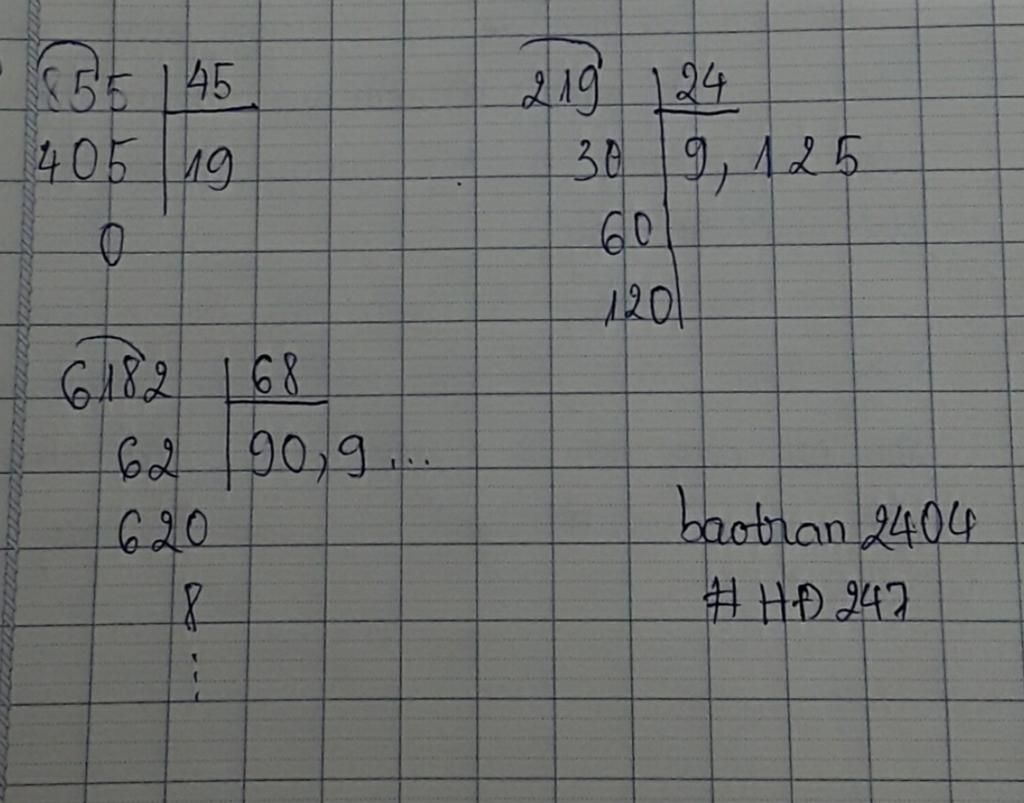 855 45
405 19
0
219 24
30 9,125
60
120
6182 68
62 90,9...
620
8
⋮
baotran 2404
# HĐ 247